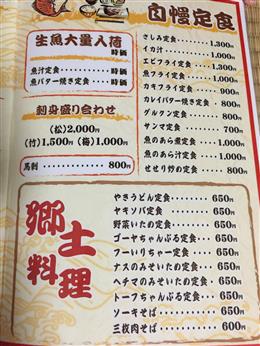 自慢定食
さしみ定食・・・・・1,300円
イカ汁・・・・・・・1,000円
エビフライ定食・・・1,300円
魚フライ定食・・・・1,000円
カキフライ定食・・・・900円
カレイバター焼き定食・・800円
グルクン定食・・・・・800円
サンマ定食・・・・・・700円
魚のあら煮定食・・・1,000円
魚のあら汁定食・・・1,000円
せせり炒め定食・・・・800円
生魚大量入荷
時価
魚汁定食・・・・・・・時価
魚バター焼き定食・・・時価
刺身盛り合わせ
(松)2,000円
(竹)1,500円 (梅)1,000円
馬刺・・・・・・・800円
郷土料理
やきうどん定食・・・・650円
ヤキソバ定食・・・・・650円
野菜いため定食・・・・650円
ゴーヤちゃんぷる定食・・650円
フーいりちゃー定食・・・650円
ナスのみそいため定食・・650円
ヘチマのみそいため定食・・650円
トーフちゃんぷる定食・・650円
ソーキそば・・・・・・650円
三枚肉そば・・・・・・600円